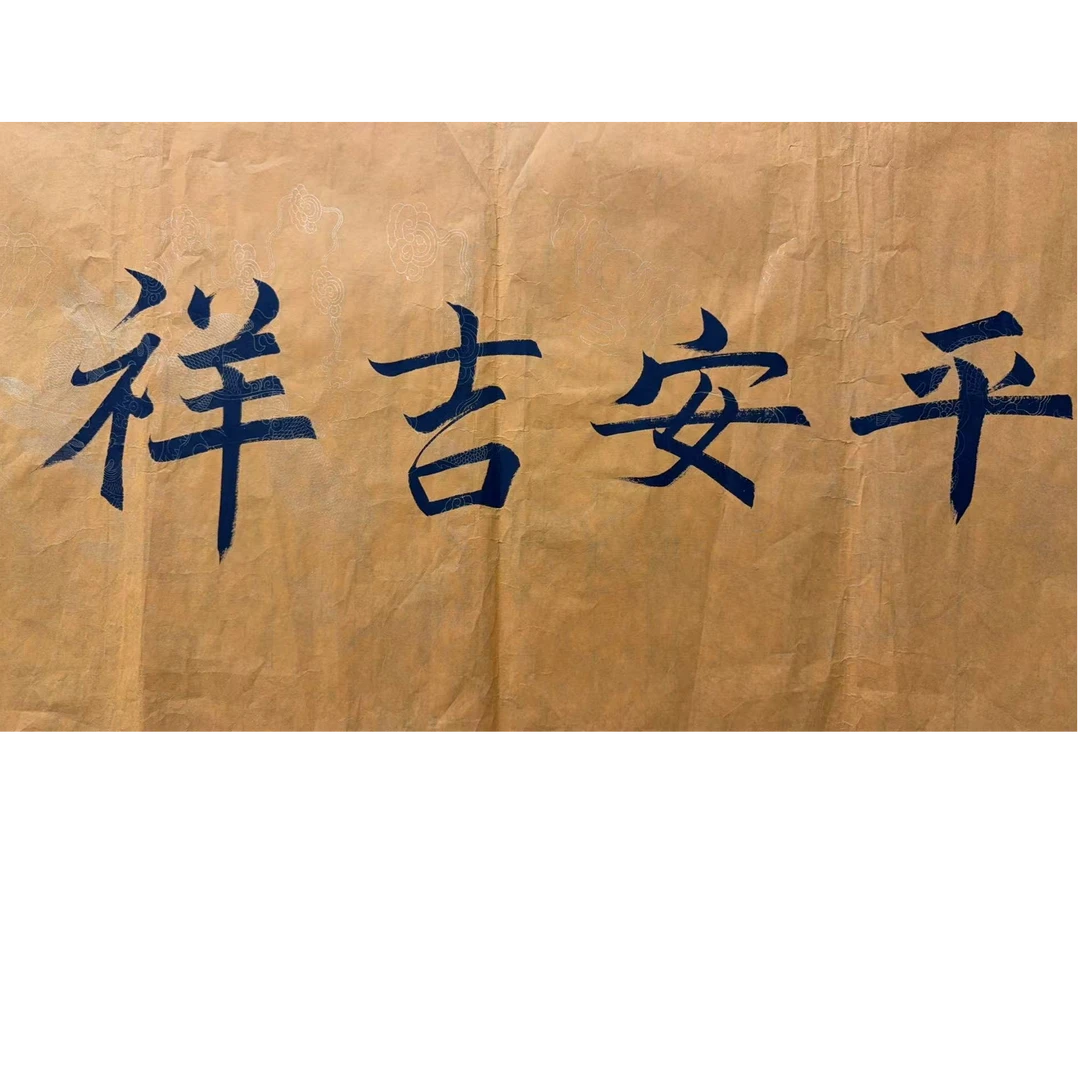 平安吉祥